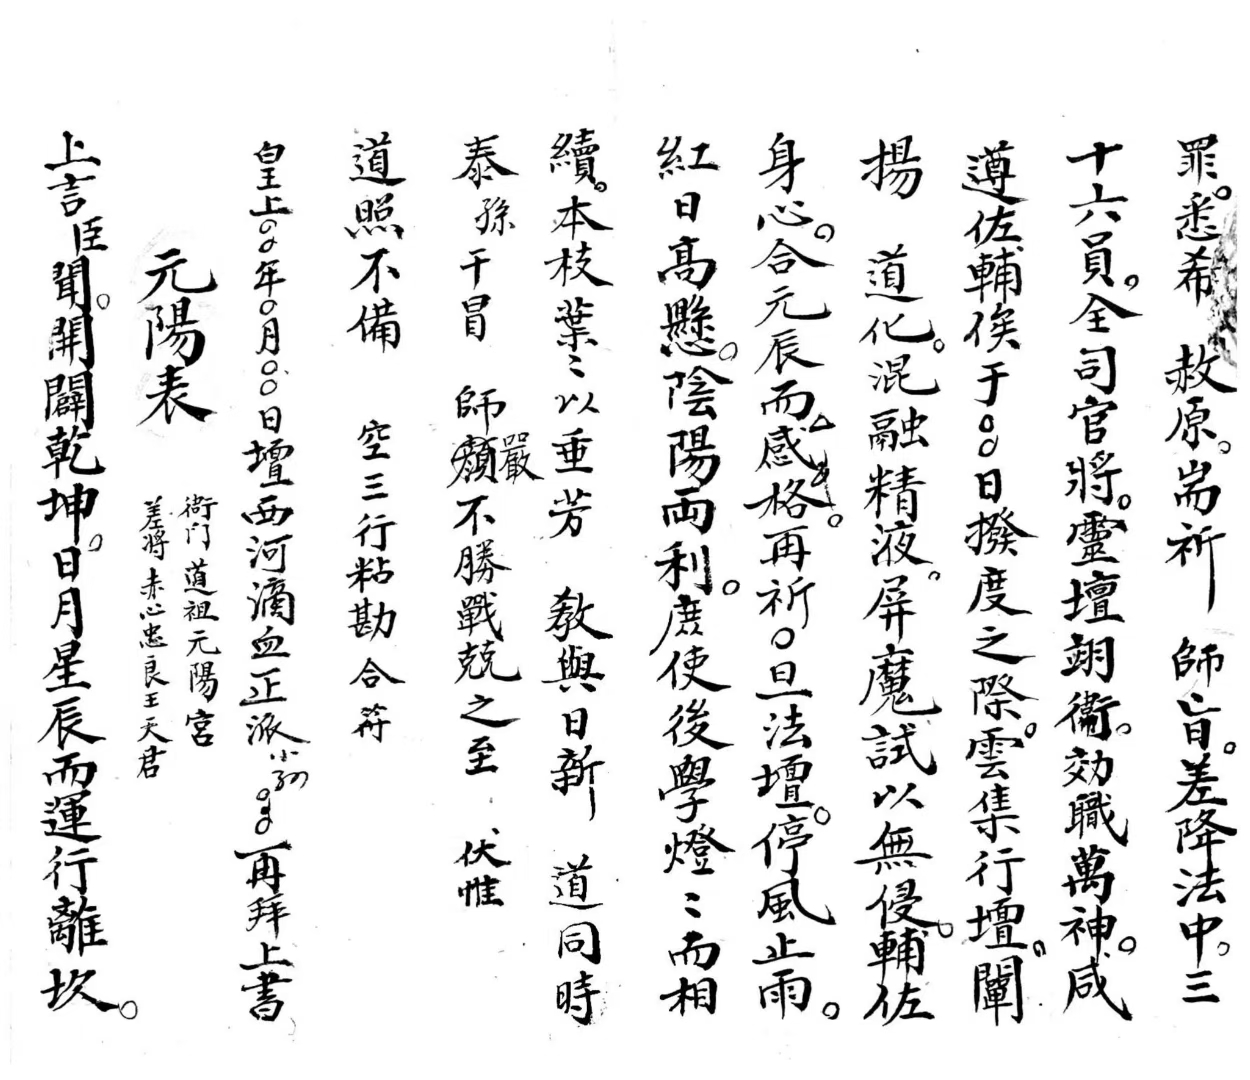 罪。悉希　赦原。耑祈　師旨。差降法中。三
十六員。全司官將。靈壇翊衞。効職萬神。咸
遵佐輔俟于〇〇日撥度之際。雲集行壇。闡
揚　道化。混融精液。屏魔試以無侵。輔佐
身心。合元辰而感格。再祈〇旦法壇。停風止雨。
紅日高懸。陰陽両利。庶使後學燈〻而相
續。本枝葉〻以垂芳　教與日新　道同時
泰孫干冒　師顏嚴不勝戰兢之至　伏惟
道照不備　空三行粘勘合符
皇上〇〇年〇月〇〇日壇西河滴血正派小孙〇〇再拜上書
元陽表
衙门道祖元陽宮
差將赤心忠良王天君
上言臣聞。開闢乾坤。日月星辰而運行離坎。